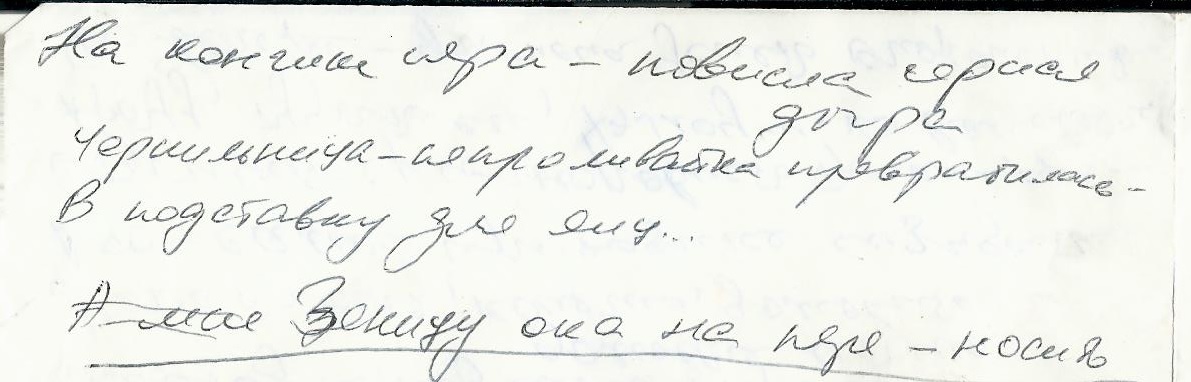 На кончике пера – повисла черная
дыра
Чернильница-непроливайка превратилась –
В подставку для яиц...
А мне Зеницу ока на пере – носить